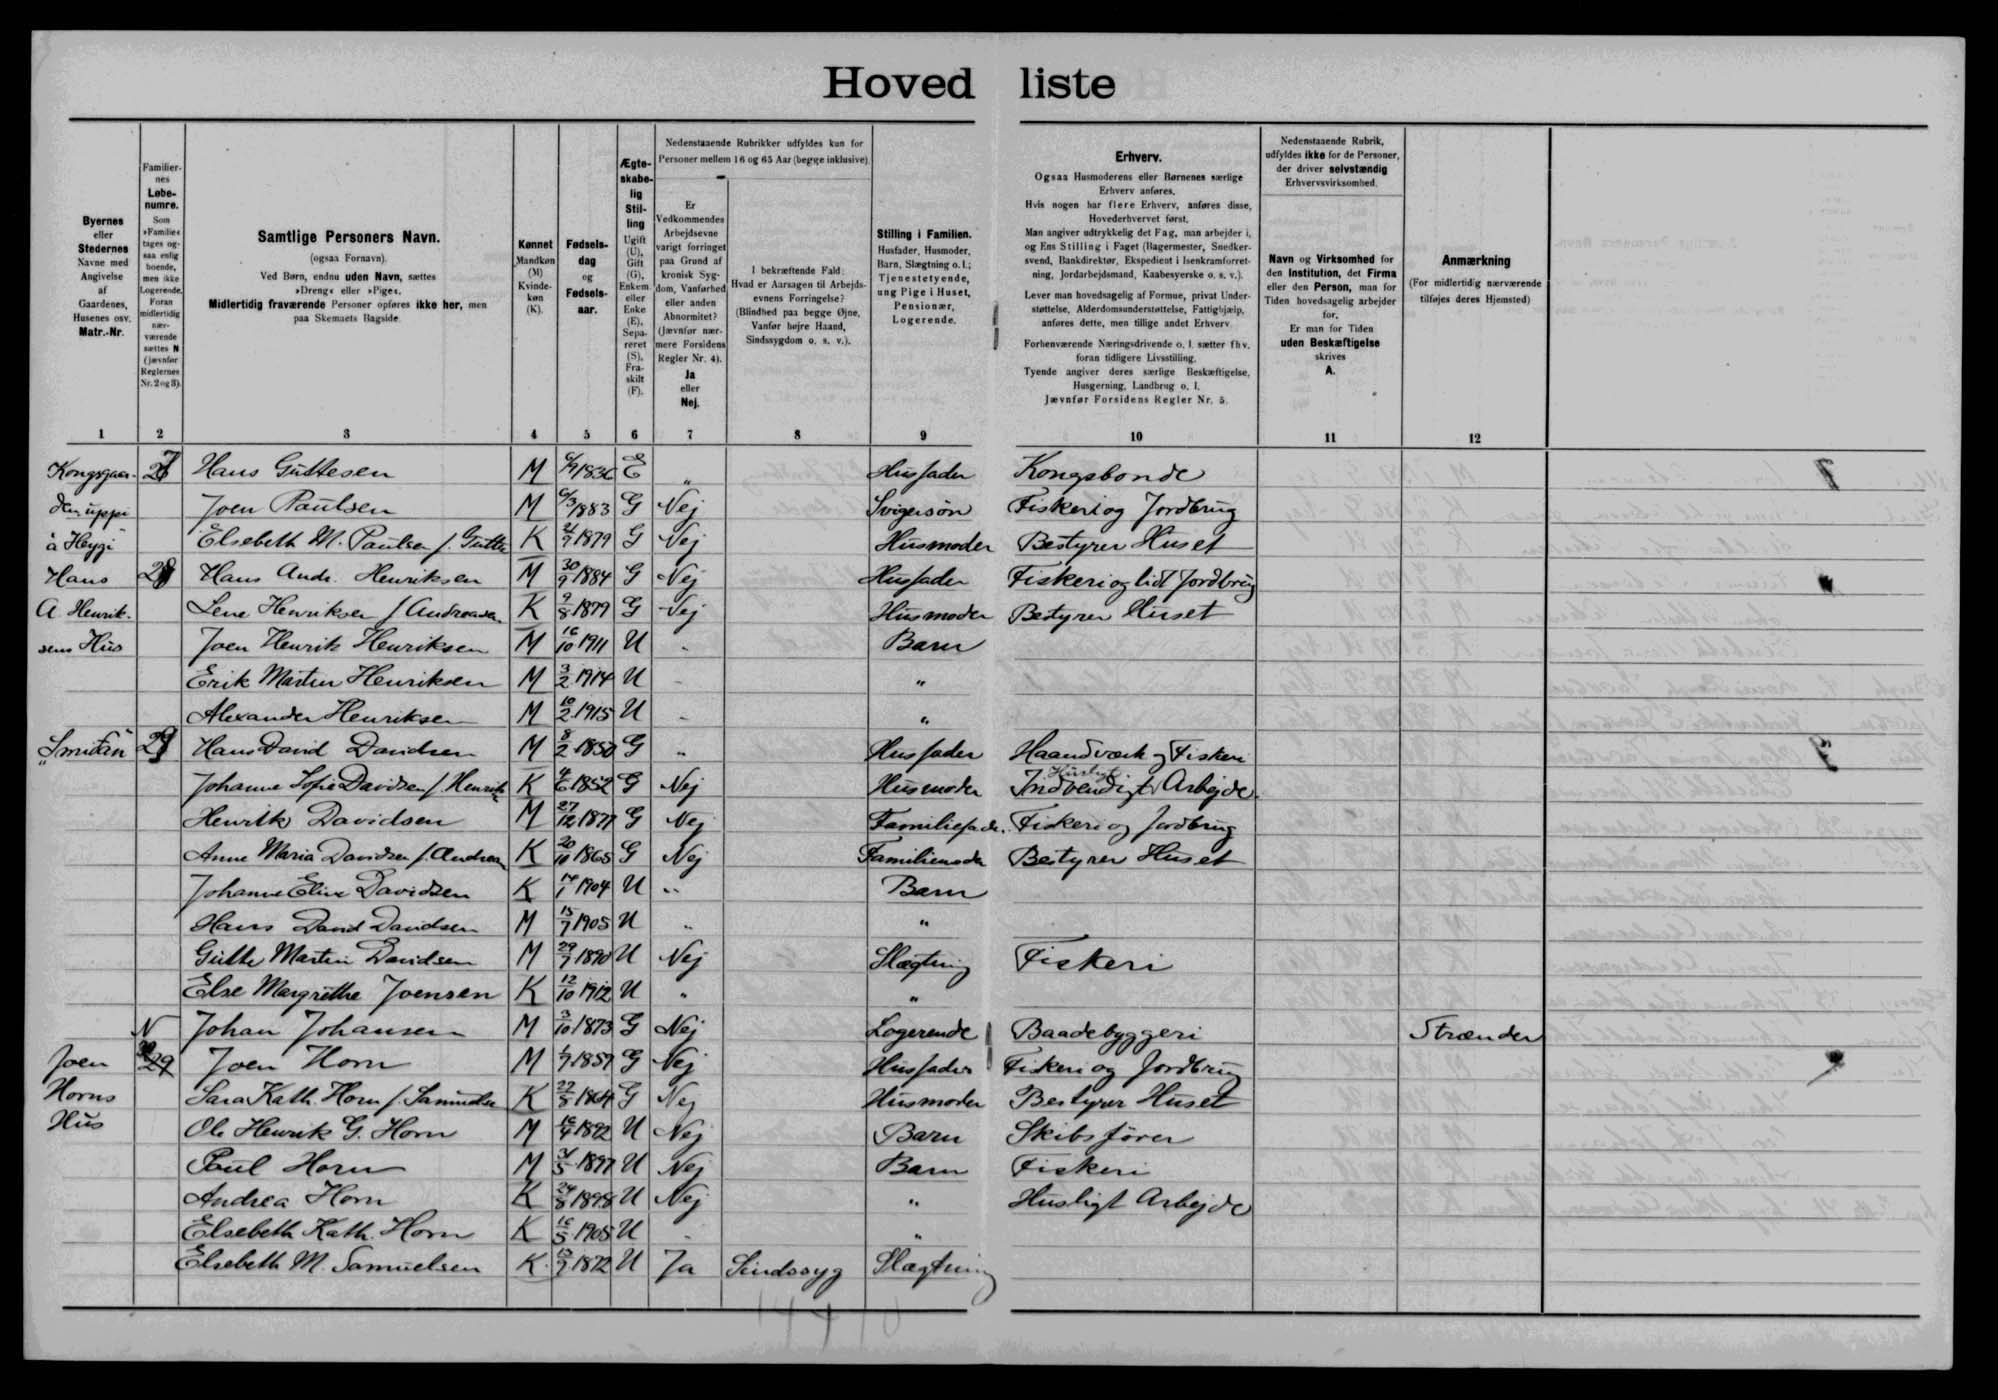 Hoved liste
Byernes eller Stedernes Navne med Angivelse af Gaardenes, Husenes osv. Matr.-Nr.
Familiernes Løbenumre. Som »Familie« tages ogsaa enlig boende, men ikke Logerende. Foran midlertidig nærværende sættes N (jævnfør Reglernes Nr. 2 og 3).
Samtlige Personers Navn. (ogsaa Fornavn). Ved Børn, endnu uden Navn, sættes »Dreng« eller »Pige«. Midlertidig fraværende Personer opføres ikke her, men paa Skemaets Bagside.
Kønnet Mandkøn (M) Kvindekøn (K).
Fødselsdag og Fødselsaar.
Ægteskabelig Stilling Ugift (U), Gift (G), Enkem. eller Enke (E), Separeret (S), Fraskilt (F).
Nedenstaaende Rubrikker udfyldes kun for Personer mellem 16 og 65 Aar (begge inklusive).
Er Vedkommendes Arbejdsevne varigt forringet paa Grund af kronisk Sygdom, Vanførhed eller anden Abnormitet? (Jævnfør nærmere Forsidens Regler Nr. 4). Ja eller Nej.
I bekræftende Fald: Hvad er Aarsagen til Arbejdsevnens Forringelse? (Blindhed paa begge Øjne, Vanfør højre Haand, Sindssygdom o. s. v.).
Stilling i Familien. Husfader, Husmoder, Barn, Slægtning o. l.; Tjenestetyende, ung Pige i Huset, Pensionær, Logerende.
Erhverv.
Ogsaa Husmoderens eller Børnenes særlige Erhverv anføres.
Hvis nogen har flere Erhverv, anføres disse, Hovederhvervet først.
Man angiver udtrykkelig det Fag, man arbejder i, og Ens Stilling i Faget (Bagermester, Snedkersvend, Bankdirektør, Ekspedient i Isenkramforretning, Jordarbejdsmand, Kaabesyerske o. s. v.).
Lever man hovedsagelig af Formue, privat Understøttelse, Alderdomsunderstøttelse, Fattighjælp, anføres dette, men tillige andet Erhverv.
Forhenværende Næringsdrivende o. l. sætter fhv. foran tidligere Livsstilling.
Tyende angiver deres særlige Beskæftigelse, Husgerning, Landbrug o. l.
Jævnfør Forsidens Regler Nr. 5.
Nedenstaaende Rubrik, udfyldes ikke for de Personer, der driver selvstændig Erhvervsvirksomhed.
Navn og Virksomhed for den Institution, det Firma eller den Person, man for Tiden hovedsagelig arbejder for.
Er man for Tiden uden Beskæftigelse skrives A.
Anmærkning (For midlertidig nærværende tilføjes deres Hjemsted)
1 2 3 4 5 6 7 8 9 10 11 12
Kongsgaar- 27 Hans Guttesen M 6/9 1836 E " Husfader Kongsbonde
den uppi Joen Paulsen M 6/3 1883 G Nej Svigersøn Fiskeri og Jordbrug
á Heygi Elsebeth M. Paulsen f. Gutte K 21/7 1879 G Nej Husmoder Bestyrer Huset
Hans 28 Hans Andr. Henriksen M 30/9 1884 G Nej Husfader Fiskeri og lidt Jordbrug
A. Henrik- Lene Henriksen f. Andreasen K 9/8 1879 G Nej Husmoder Bestyrer Huset
sens Hus Joen Henrik Henriksen M 16/10 1911 U " Barn
Erik Martin Henriksen M 3/2 1914 U " "
Alexander Henriksen M 10/2 1915 U " "
"Smiðan" 29 Hans David Davidsen M 8/2 1850 G " Husfader Haandværk og Fiskeri
Johanne Sofie Davidsen f. Henrik K 4/6 1852 G Nej Husmoder Indvendigt Husligt Arbejde.
Henrik Davidsen M 27/12 1877 G Nej Familiefader. Fiskeri og Jordbrug
Anne Maria Davidsen f. Andrea K 20/10 1865 G Nej Familiemoder Bestyrer Huset
Johanne Eline Davidsen K 14/1 1904 U " Barn
Hans David Davidsen M 15/7 1905 U " "
Gutte Martin Davidsen M 29/7 1890 U Nej Slægtning Fiskeri
Else Margrethe Joensen K 12/10 1912 U " "
N Johan Johansen M 3/10 1873 G Nej Logerende Baadebyggeri Strænder
Joen 29 Joen Horn M 1/7 1859 G Nej Husfader Fiskeri og Jordbrug
Horns Sara Kath. Horn f. Samuelse K 22/8 1864 G Nej Husmoder Bestyrer Huset
Hus Ole Henrik G. Horn M 16/4 1892 U Nej Barn Skibsfører
Poul Horn M 31/5 1897 U Nej Barn Fiskeri
Andrea Horn K 24/8 1898 U Nej " Husligt Arbejde
Elsebeth Kath. Horn K 16/5 1905 U " "
Elsebeth M. Samuelsen K. 13/7 1872 U Ja Sindssyg Slægtning